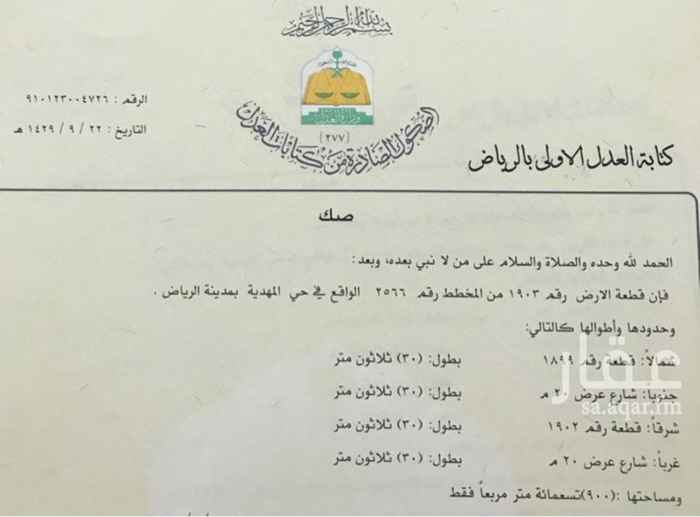 بسم الله الرحمن الرحيم
الرقم : ٩١٠١٢٣٠٠٤٧٢٦
التاريخ : ٢٢ / ٩ / ١٤٢٩ هـ
وزارة العدل
(٢٧٧)
الصكوك الصادرة من كتابات العدل
كتابة العدل الاولى بالرياض
صك
الحمد لله وحده والصلاة والسلام على من لا نبي بعده، وبعد:
فإن قطعة الارض رقم ١٩٠٣ من المخطط رقم ٢٥٦٦ الواقع في حي المهدية بمدينة الرياض .
وحدودها وأطوالها كالتالي:
شمالاً: قطعة رقم ١٨٩٩ بطول: (٣٠) ثلاثون متر
جنوباً: شارع عرض ٢٠ م بطول: (٣٠) ثلاثون متر
شرقاً: قطعة رقم ١٩٠٢ بطول: (٣٠) ثلاثون متر
غرباً: شارع عرض ٢٠ م بطول: (٣٠) ثلاثون متر
ومساحتها :(٩٠٠)تسعمائة متر مربعاً فقط
عقار
sa.aqar.fm